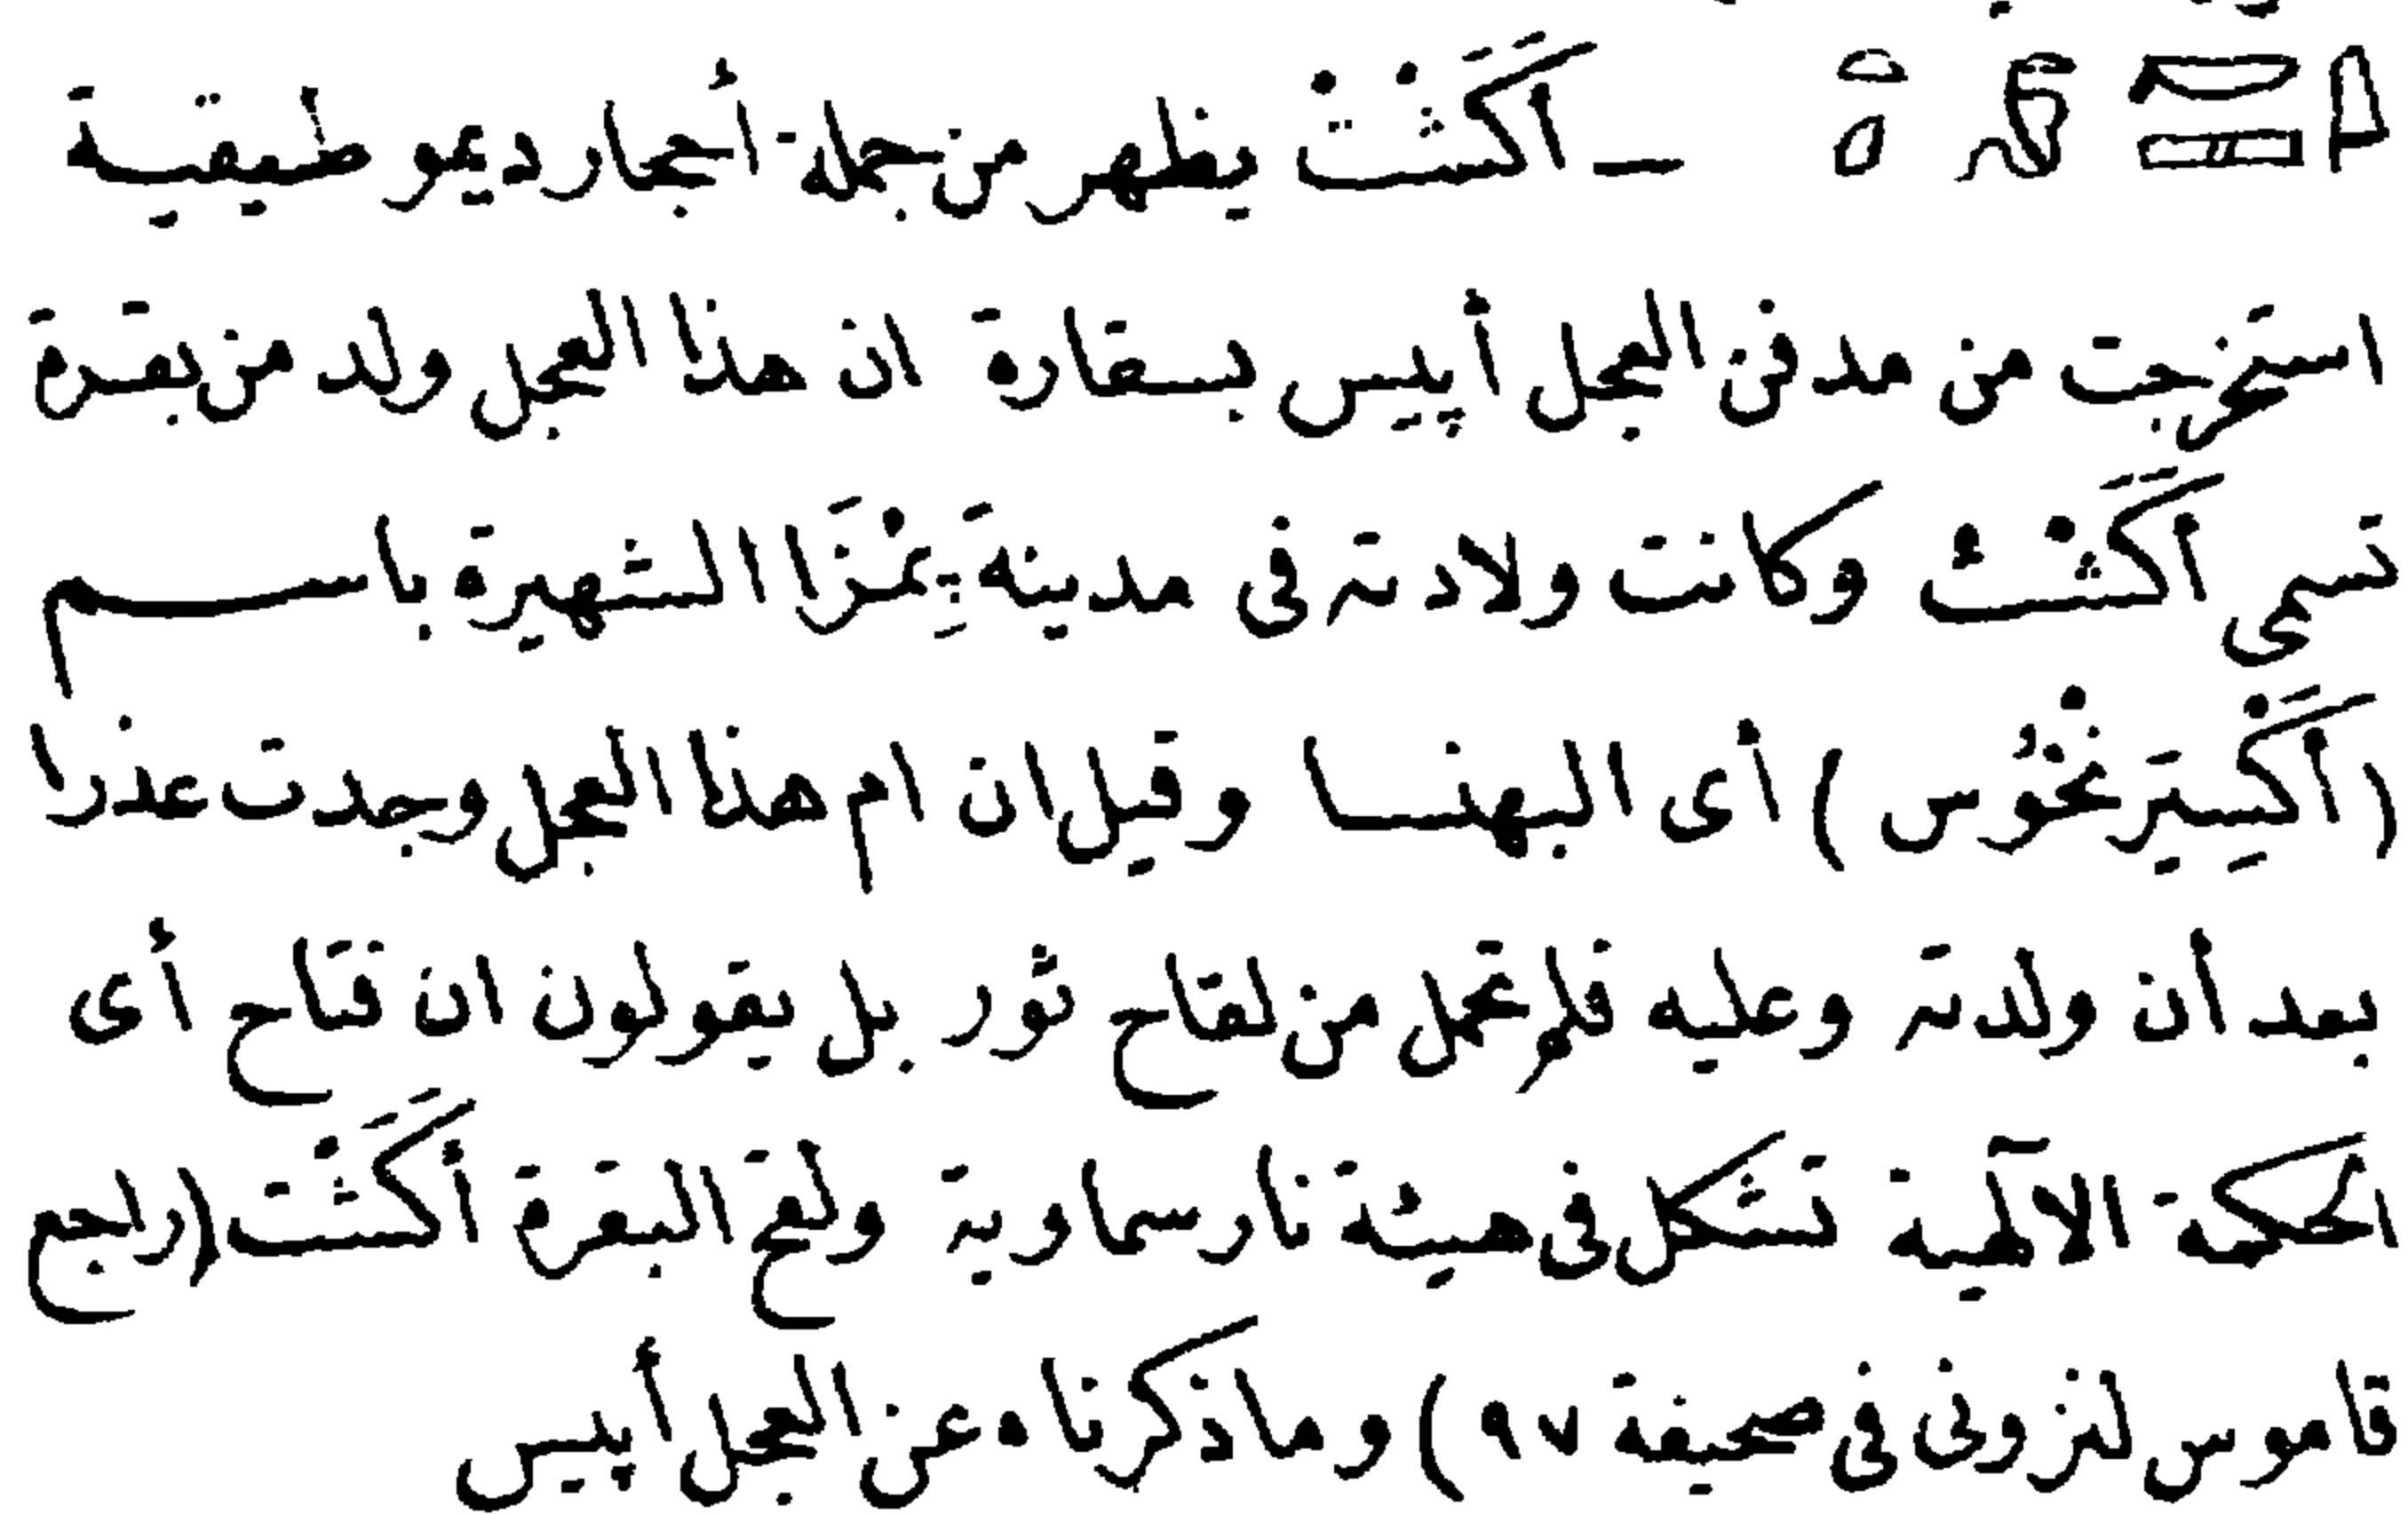 ـ أَكَثْتْ يظهر من جملة أحجار ديموطيقية
استخرجت من مدفن العجل أپيس بسقارة ان هذا العجل ولد من بقرة
تسمى أَكَثْتْ وكانت ولادته فى مدينة پِمْزَا الشهيرة باسم
(أَكْسِيِرَنْخُوس) أى البهنسا وقيل ان ام هذا العجل وجدت عذرا
بعد أن ولدته وعليه فلم تحمل من لقاح ثور بل يقولون ان فتاح أى
الحكمة الآلهية تشكل فى هيئة نار سماوية ولقح البقرة أَكَثْت (راجع
قاموس لنزونى فى صحيفة ٩٧) وما ذكرناه عن العجل أپيس